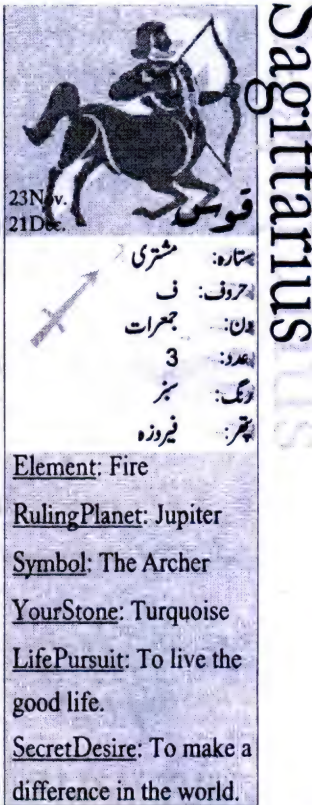 Sagittarius
23Nov.
21Dec.
قوس
ستارہ: مشتری
حروف: ف
دن: جمعرات
عدد: 3
رنگ: سبز
پتھر: فیروزہ
Element: Fire
RulingPlanet: Jupiter
Symbol: The Archer
YourStone: Turquoise
LifePursuit: To live the
good life.
SecretDesire: To make a
difference in the world.